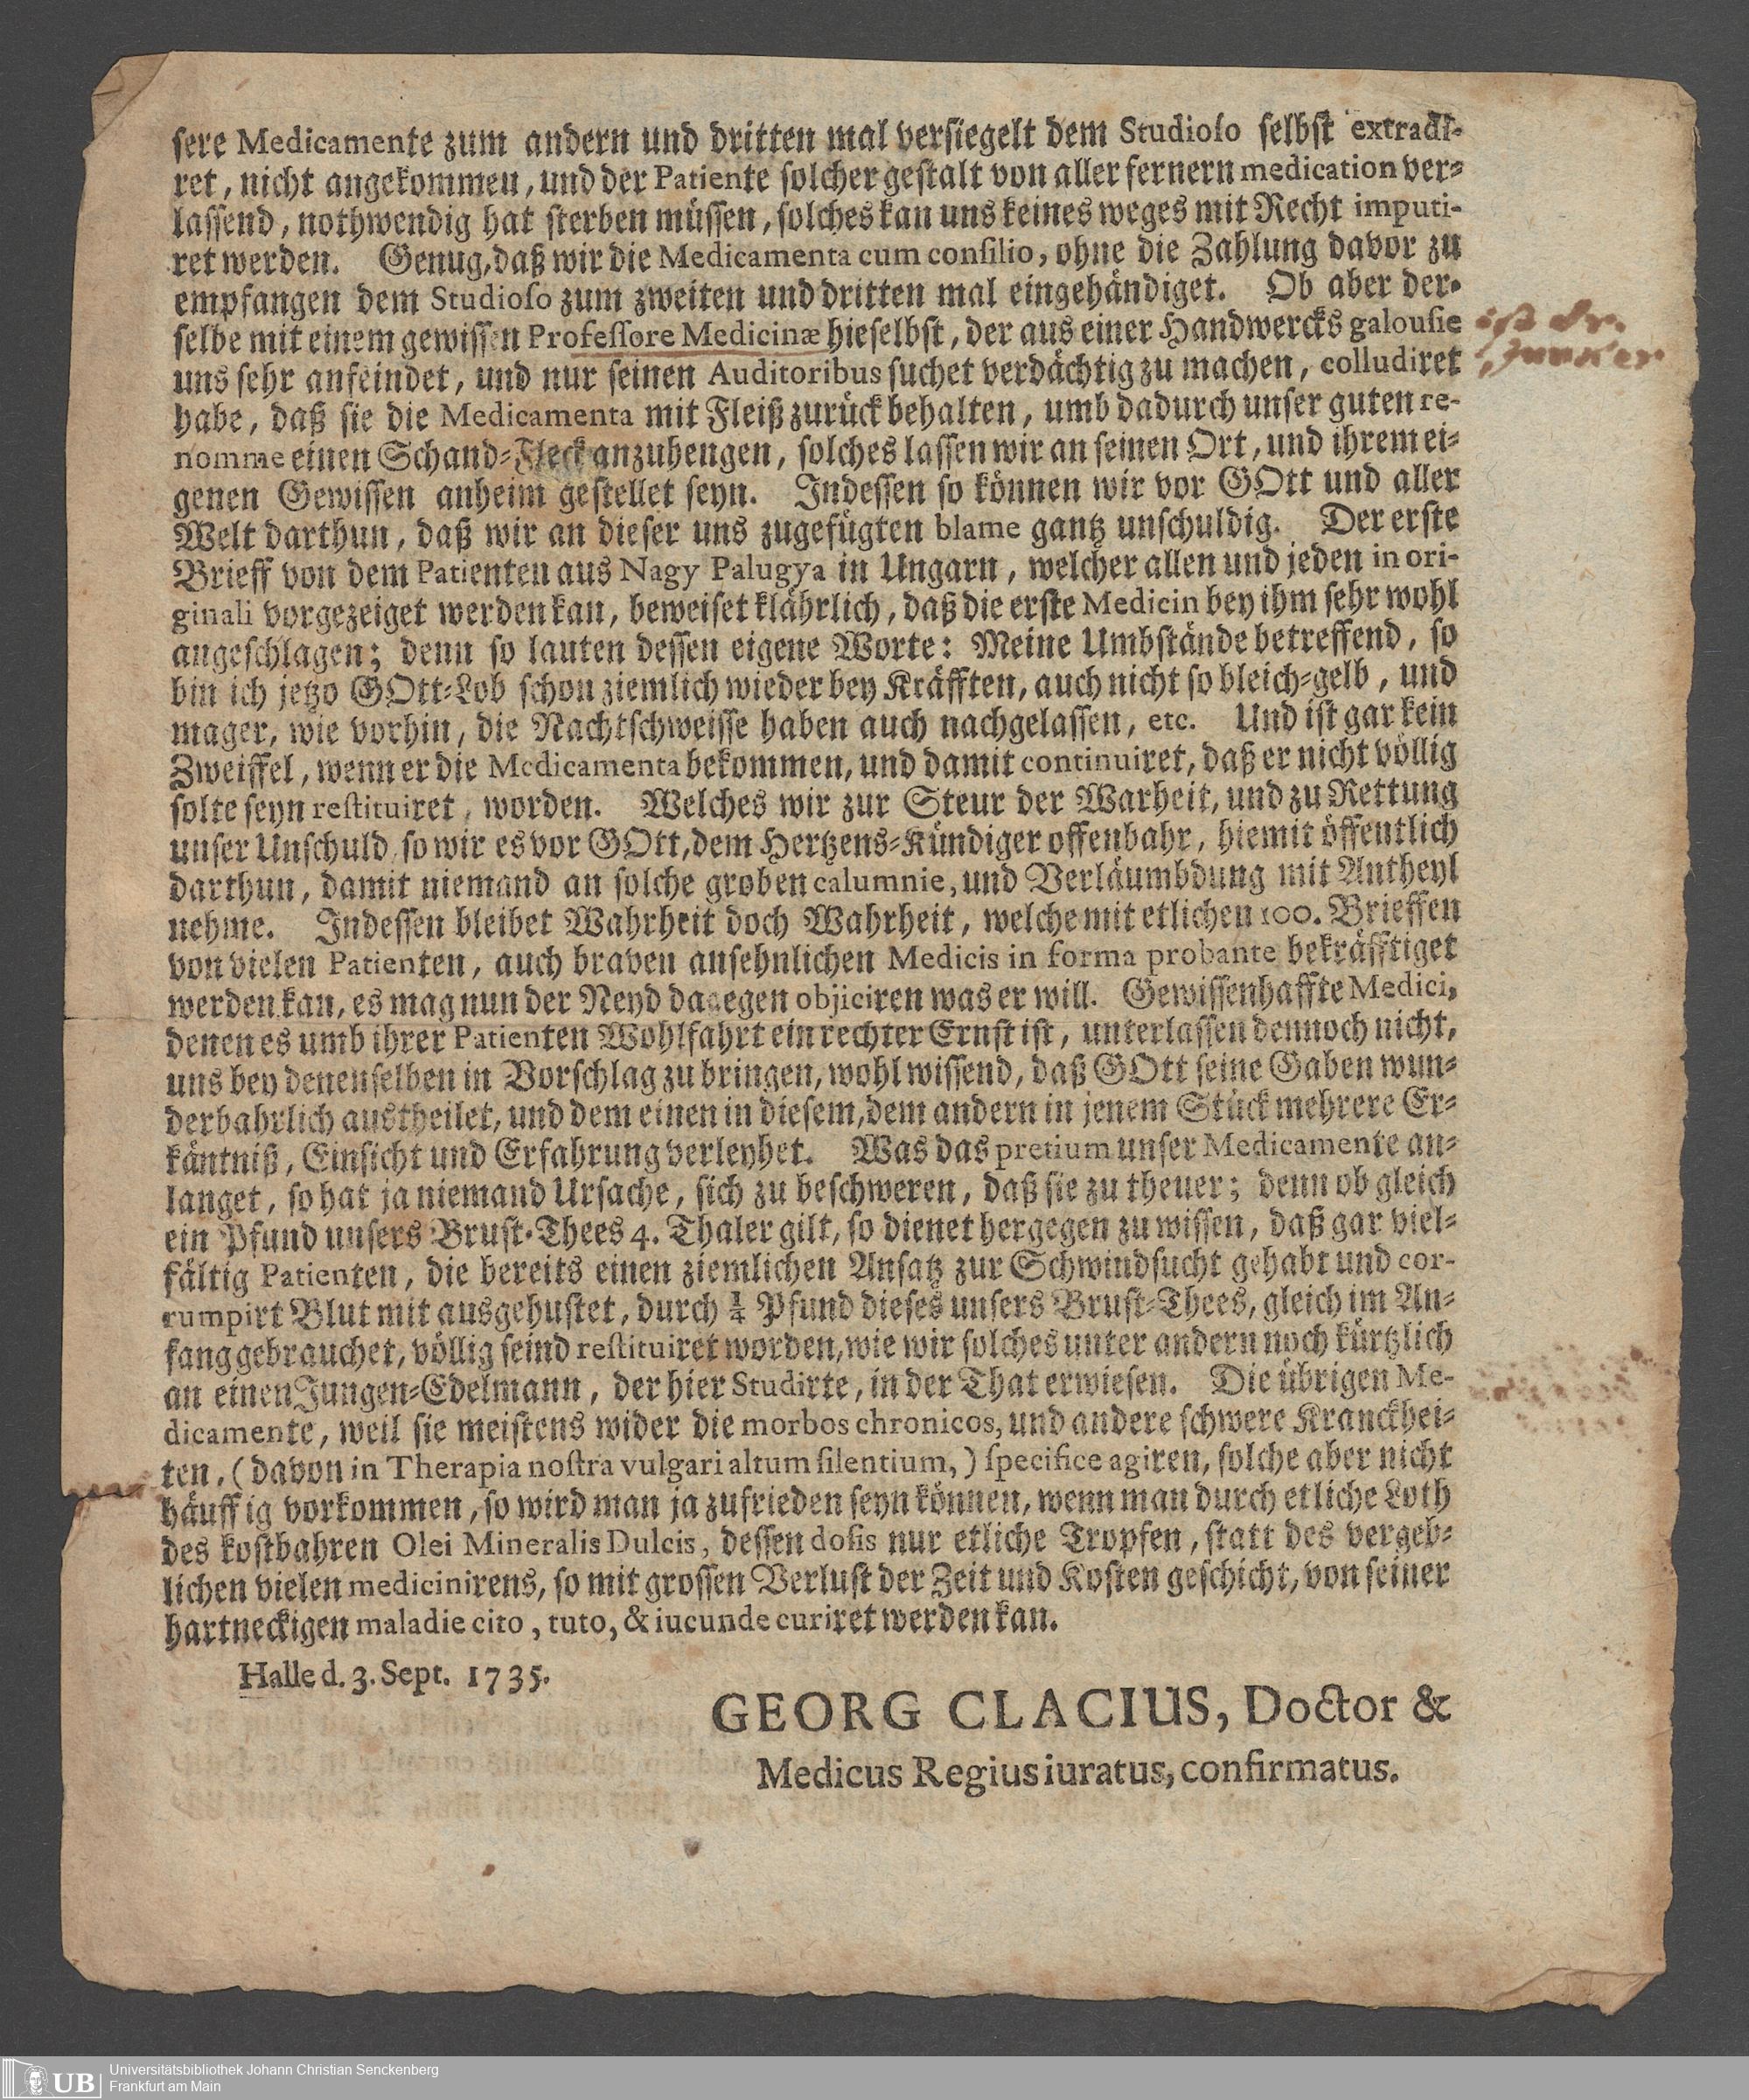 sere Medicamente zum andern und dritten mal versiegelt dem Studioſo selbst extradi-
ret, nicht angekommen, und der Patiente solcher gestalt von aller fernern medication ver-
lassend, nothwendig hat sterben müssen, solches kan uns keines weges mit Recht imputi-
ret werden. Genug, daß wir die Medicamenta cum conſilio, ohne die Zahlung davor zu
empfangen dem Studioſo zum zweiten und dritten mal eingehändiget. Ob aber der-
selbe mit einem gewissen Profeſſore Medicinæ hieselbst, der aus einer Handwercks galouſie
ist Dr.
Juncker
uns sehr anfeindet, und nur seinen Auditoribus suchet verdächtig zu machen, colludiret
habe, daß sie die Medicamenta mit Fleiß zurück behalten, umb dadurch unser guten re-
nomme einen Schand-Fleck anzuhengen, solches lassen wir an seinen Ort, und ihrem ei-
genen Gewissen anheim gestellet seyn. Indessen so können wir vor GOtt und aller
Welt darthun, daß wir an dieser uns zugefügten blame gantz unschuldig. Der erste
Brieff von dem Patienten aus Nagy Palugya in Ungarn, welcher allen und jeden in ori-
ginali vorgezeiget werden kan, beweiset klährlich, daß die erste Medicin bey ihm sehr wohl
angeschlagen; denn so lauten dessen eigene Worte: Meine Umbstände betreffend, so
bin ich jetzo GOtt-Lob schon ziemlich wieder bey Kräfften, auch nicht so bleich-gelb, und
mager, wie vorhin, die Nachtschweisse haben auch nachgelassen, etc. Und ist gar kein
Zweiffel, wenn er die Medicamenta bekommen, und damit continuiret, daß er nicht völlig
solte seyn reſtituiret, worden. Welches wir zur Steur der Warheit, und zu Rettung
unser Unschuld, so wir es vor GOtt, dem Hertzens-Kündiger offenbahr, hiemit öffentlich
darthun, damit niemand an solche groben calumnie, und Verläumbdung mit Antheyl
nehme. Indessen bleibet Wahrheit doch Wahrheit, welche mit etlichen 100. Brieffen
von vielen Patienten, auch braven ansehnlichen Medicis in forma probante bekräfftiget
werden kan, es mag nun der Neyd dagegen objiciren was er will. Gewissenhaffte Medici,
denen es umb ihrer Patienten Wohlfahrt ein rechter Ernst ist, unterlassen dennoch nicht,
uns bey denenselben in Vorschlag zu bringen, wohl wissend, daß GOtt seine Gaben wun-
derbahrlich austheilet, und dem einen in diesem, dem andern in jenem Stück mehrere Er-
käntniß, Einsicht und Erfahrung verleyhet. Was das pretium unser Medicamente an-
langet, so hat ja niemand Ursache, sich zu beschweren, daß sie zu theuer; denn ob gleich
ein Pfund unsers Brust-Thees 4. Thaler gilt, so dienet hergegen zu wissen, daß gar viel-
fältig Patienten, die bereits einen ziemlichen Ansatz zur Schwindsucht gehabt und cor-
rumpirt Blut mit ausgehustet, durch ¼ Pfund dieses unsers Brust-Thees, gleich im An-
fang gebrauchet, völlig seind reſtituiret worden, wie wir solches unter andern noch kürtzlich
an einen Jungen-Edelmann, der hier Studirte, in der That erwiesen. Die übrigen Me-
dicamente, weil sie meistens wider die morbos chronicos, und andere schwere Kranckhei-
ten, (davon in Therapia noſtra vulgari altum ſilentium,) ſpecifice agiren, solche aber nicht
häuffig vorkommen, so wird man ja zufrieden seyn können, wenn man durch etliche Loth
des kostbahren Olei Mineralis Dulcis, dessen doſis nur etliche Tropfen, statt des vergeb-
lichen vielen medicinirens, so mit grossen Verlust der Zeit und Kosten geschicht, von seiner
hartneckigen maladie cito, tuto, & iucunde curiret werden kan.
Halle d. 3. Sept. 1735.
GEORG CLACIUS, Doctor &
Medicus Regius iuratus, confirmatus.
UB
Universitätsbibliothek Johann Christian Senckenberg
Frankfurt am Main